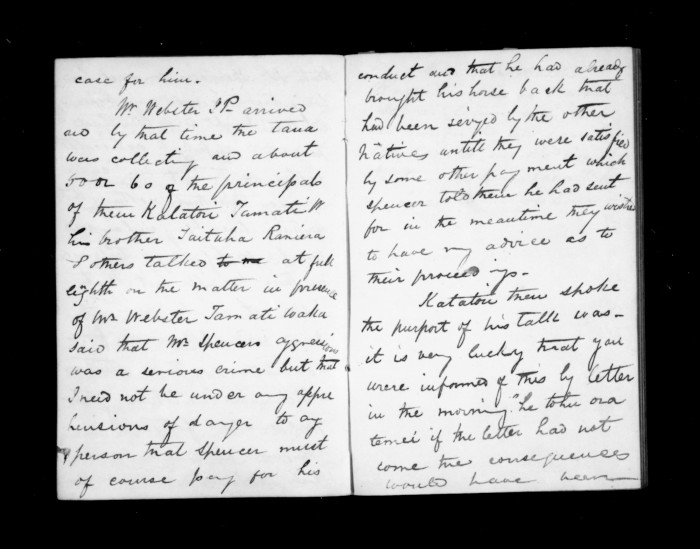 case for him.
Mr Webster JP arrived
and by that time the taua
was collecting and about
50 or 60 of the principals
of them Katatori Tamati W
his brother Taituha Raniera
& others talked to me at full
leighth on the matter in presence
of Mr Webster Tamati Waka
said that Mr Spencers aggression
was a serious crime but that
I need not be under any appre
hensions of danger to any
person that Spencer must
of course pay for his
conduct and that he had already
brought his horse back that
had been seized by the other
Natives untill they were satisfied
by some other payment which
Spencer told them he had sent
for in the meantime they wished
to have my advice as to
their proceedings -
Katatori then spoke
the purport of his talk was -
it is very lucky that you
were informed of this by letter
in the morning "he tohu ora
tenei" if the letter had not
come the consequences
would have been